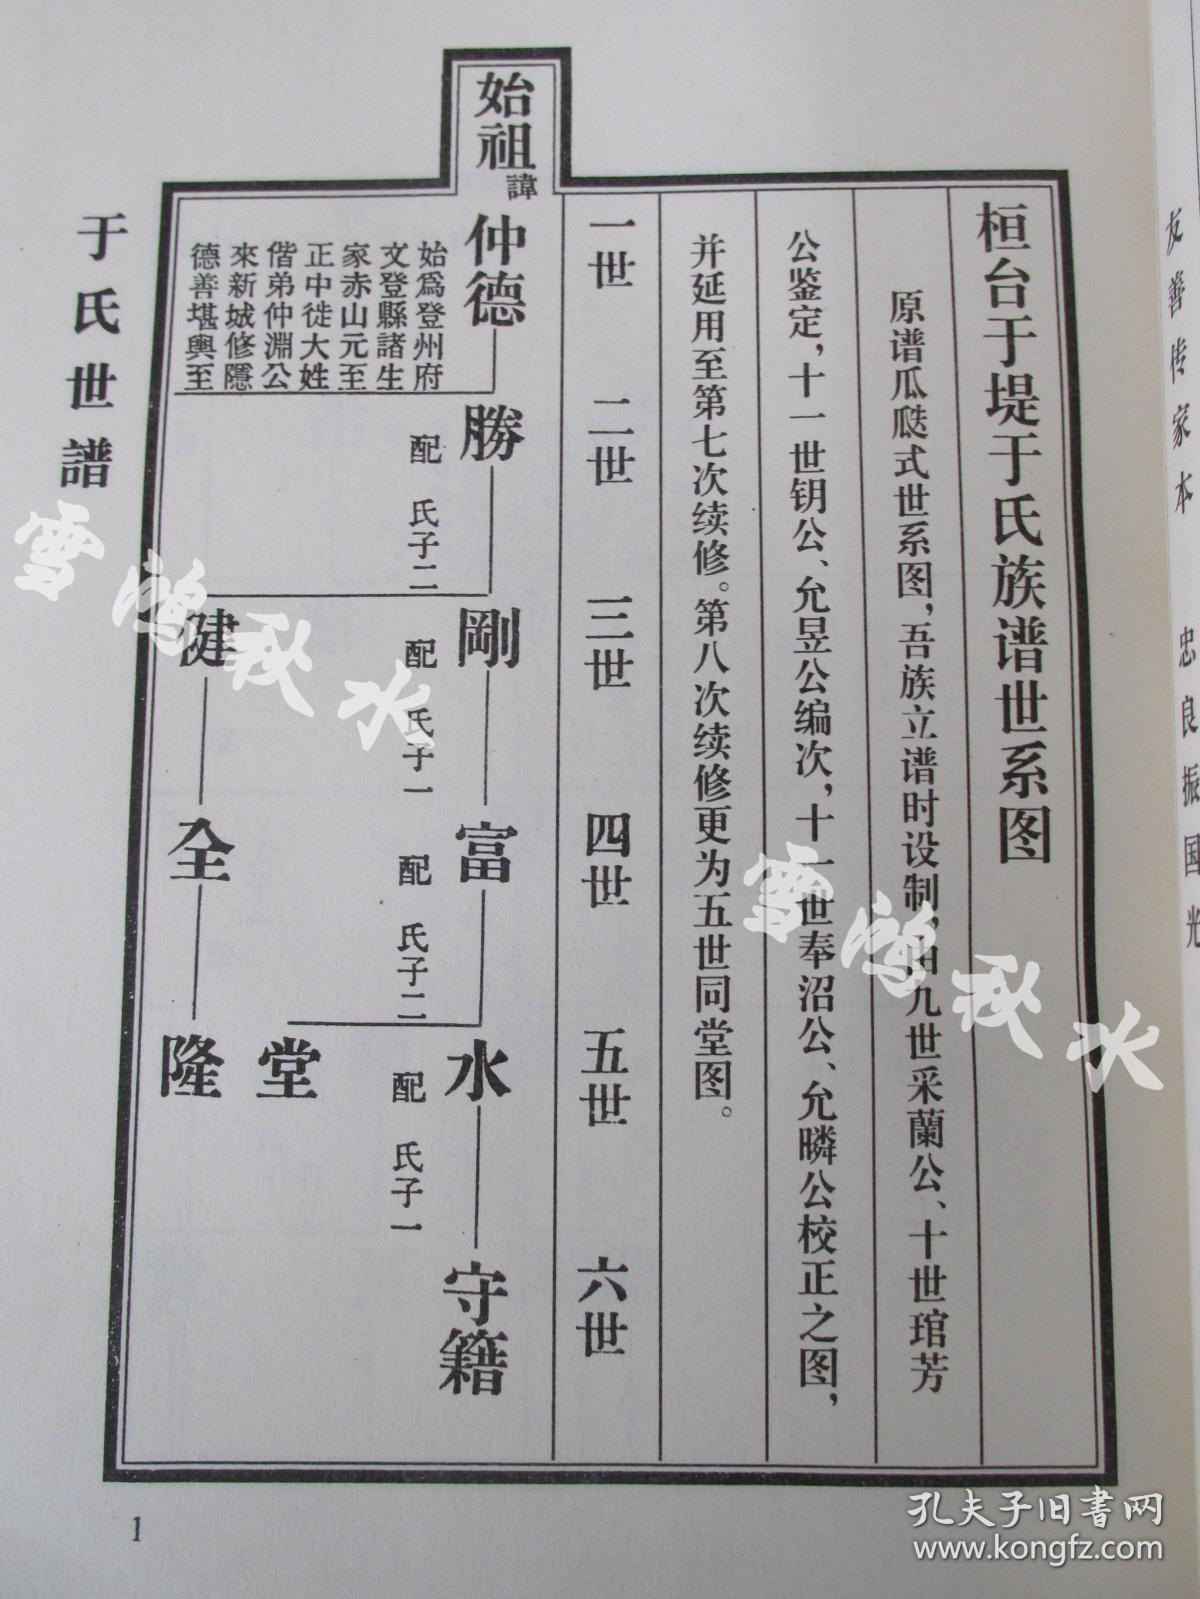 友善传家本　忠良振国光
桓台于堤于氏族谱世系图
原谱瓜瓞式世系图，吾族立谱时设制，由九世采蘭公、十世琯芳
公鉴定，十一世钥公、允昱公编次，十一世奉沼公、允暽公校正之图，
并延用至第七次续修。第八次续修更为五世同堂图。
一世
二世
三世
四世
五世
六世
始祖
諱
仲德
始爲登州府
文登縣諸生
家赤山元至
正中徙大姓
偕弟仲淵公
來新城修隱
德善堪輿至
勝
配　氏子二
剛
配　氏子一
富
配　氏子二
水
配　氏子一
守籍
堂
健
全
隆
于氏世譜
1
雪鸿秋水
雪鸿秋水
孔夫子旧书网
www.kongfz.com